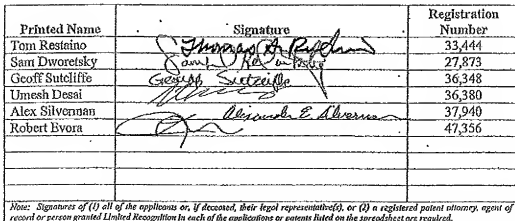 Printed Name Signature Registration Number
Tom Restaino Thomas 33,444
Sam Dworetsky Sam 27,873
Geoff Sutcliffe 36,348
Umesh Desai 36,380
Alex Silverman Alexander E. 37,940
Robert Evora 47,356
Note: Signatures of (1) all of the applicants or, if deceased, their legal representative(s), or (2) a registered patent attorney, agent of
record or person granted Limited Recognition in each of the applications or patents listed on the spreadsheet are required.